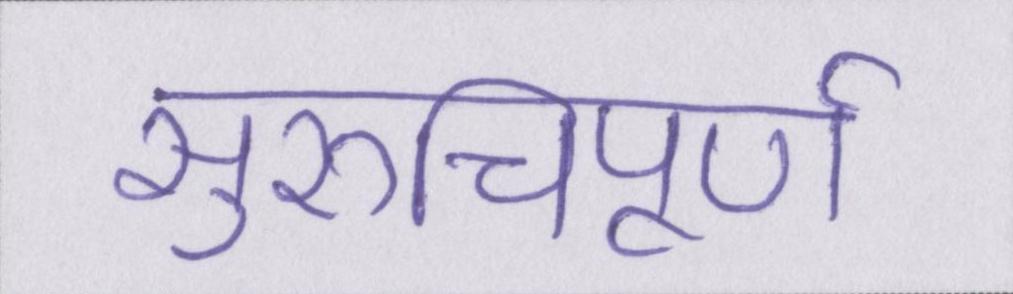 सुरुचिपूर्ण